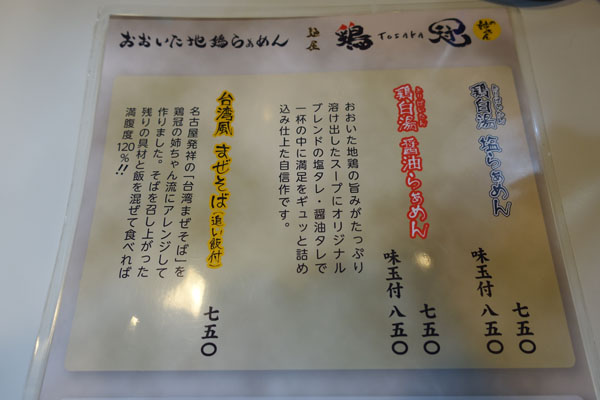 おおいた地鶏らぁめん 麺屋 鶏冠 TOSAKA
鶏白湯 塩らぁめん
七五〇
味玉付 八五〇
鶏白湯 醤油らぁめん
七五〇
味玉付 八五〇
おおいた地鶏の旨みがたっぷり
溶け出したスープにオリジナル
ブレンドの塩タレ・醤油タレで
一杯の中に満足をギュッと詰め
込み仕上た自信作です。
台湾風 まぜそば(追い飯付)
七五〇
名古屋発祥の「台湾まぜそば」を
鶏冠の姉ちゃん流にアレンジして
作りました。そばを召し上がった
残りの具材と飯を混ぜて食べれば
満腹度120%!!